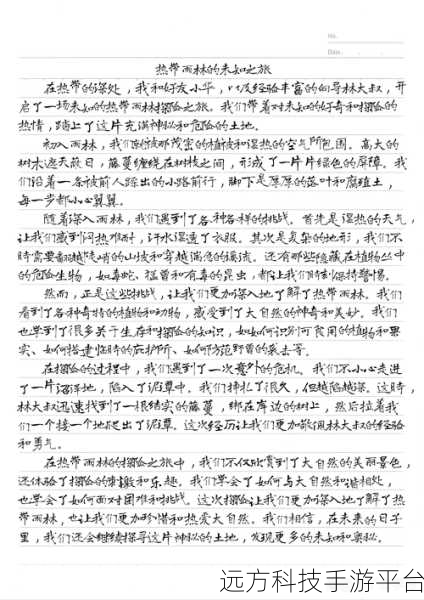 No.
Date
热带雨林的未知之旅
在热带的深处，我和好友小华，以及经验丰富的向导林大叔，开
启了一场未知的热带雨林探险之旅。我们带着对未知的好奇和探险的
热情，踏上了这片充满神秘和危险的土地。
初入雨林，我们就被那茂密的植被和湿热的空气所包围。高大的
树木遮天蔽日，藤蔓缠绕在树枝之间，形成了一片片绿色的屏障。我
们沿着一条被前人踩出的小路前行，脚下是厚厚的落叶和腐殖土，
每一步都小心翼翼。
随着深入雨林，我们遇到了各种各样的挑战。首先是湿热的天气，
让我们感到闷热难耐，汗水湿透了衣服。其次是复杂的地形，我们不
时需要翻越陡峭的山坡和穿越湍急的溪流。还有那些隐藏在植物丛中
的危险生物，如毒蛇、猛兽和有毒的昆虫，都让我们时刻保持警惕。
然而，正是这些挑战，让我们更加深入地了解了热带雨林。我们
看到了各种奇特的植物和动物，感受到了大自然的神奇和美妙。我们
也学到了很多关于生存和探险的知识，如如何识别可食用的植物和果
实、如何搭建临时的庇护所、如何防范野兽的袭击等。
在探险的过程中，我们遇到了一次意外的危机。我们不小心走进
了一片沼泽地，陷入了泥潭中。我们挣扎了很久，但越陷越深。这时，
林大叔迅速找到了一根结实的藤蔓，绑在岸边的树上，然后拉着我
们一个接一个地爬出了泥潭。这次经历让我们更加敬佩林大叔的经验
和勇气。
在热带雨林的探险之旅中，我们不仅欣赏到了大自然的美丽景色，
还体验了探险的刺激和乐趣。我们学会了如何与大自然和谐相处，
也学会了如何面对困难和挑战。这次探险让我们更加深入地了解了热
带雨林，也让我们更加珍惜和热爱大自然。我们相信，在未来的日子
里，我们还会继续探寻这片神秘的土地，发现更多的未知和奥秘。
远方科技手游平台